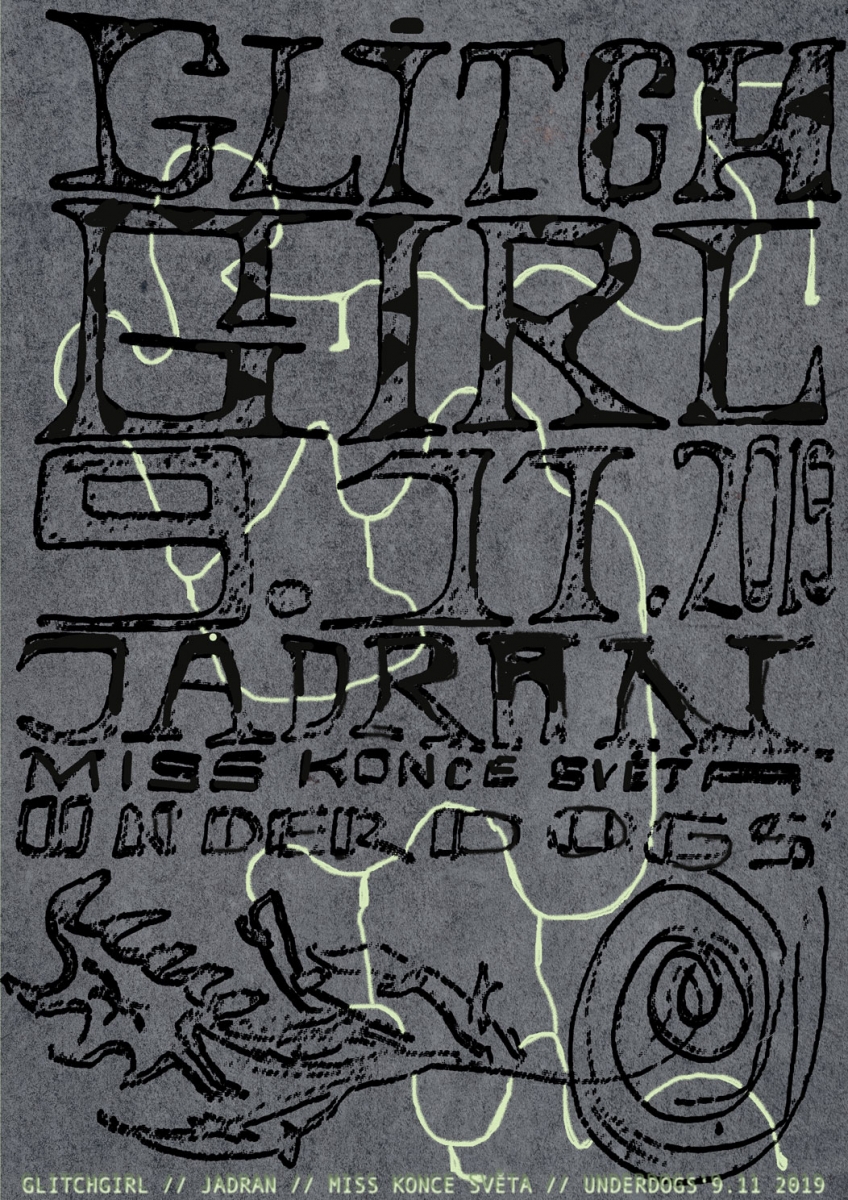 GLITCH
GIRL
9.11.2019
JADRAN
MISS KONCE SVĚTA
UNDERDOGS'
GLITCHGIRL // JADRAN // MISS KONCE SVĚTA // UNDERDOGS'9.11 2019